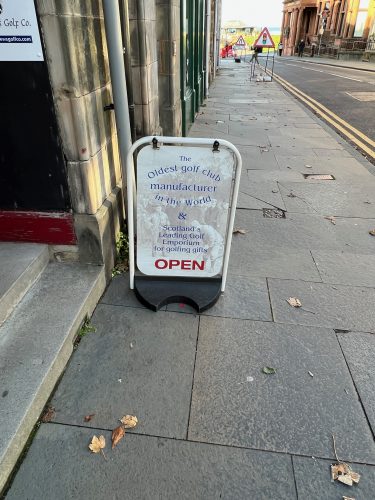 s Golf Co.
The
Oldest golf club
manufacturer
in the World
&
Scotland's
Leading Golf
Emporium
for golfing gifts
OPEN